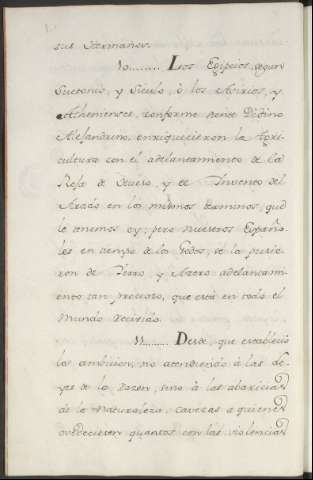 sus Hermanos.
10......... Los Egipcios, segun
Suetonio, y Siculo, ô los Asirios, y
Athenienses, conforme siente
Alejandrino, enriquecieron la Agri-
cultura con el adelantamiento de la
Reja de Suelo, y el Invento del
Arado en los mismos terminos, que
le tenimos oy; pero nuestros Españo-
les en tiempo de los Godos, se la pusie-
ron de Yerro y Azero adelantami-
ento tan precioso, que está en todo el
Mundo recivido.
11......... Desde, que establecio
la ambision, no atendiendo â las Le-
yes de la Razon, sino â las
de la Naturaleza, cavezas a quienes
ovedeciesen quantos con las violencias